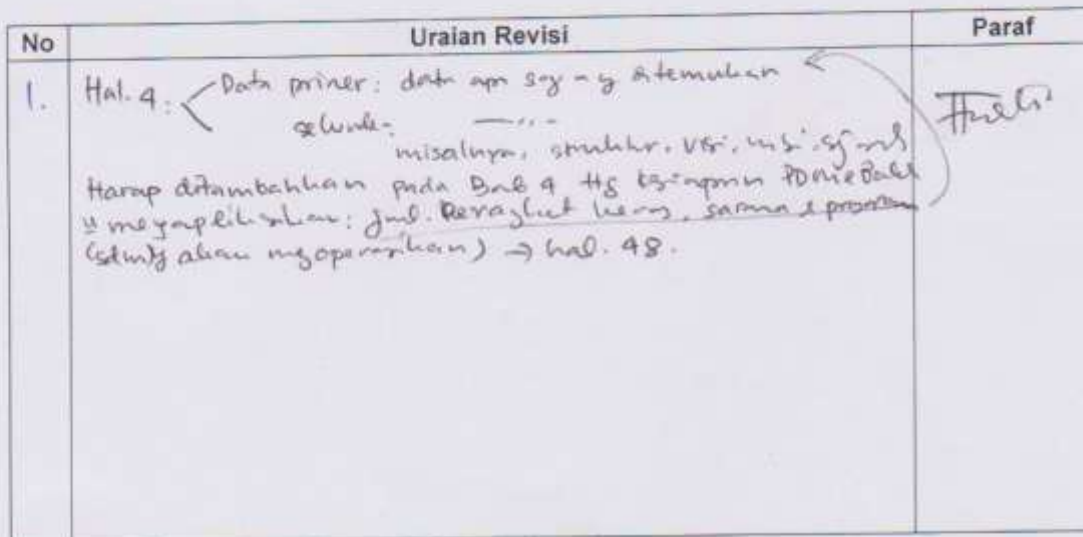 No Uraian Revisi Paraf
1. Hal. 4: Data primer: data apa saja yg ditemukan
sekunder: —〃—
misalnya, struktur, visi, misi, sejarah
Harap ditambahkan pada Bab 4 ttg kesiapan
u mengaplikasikan: jml. Perangkat keras, sarana & prasarana
(sdm yg akan mgoperasikan) → hal. 48.